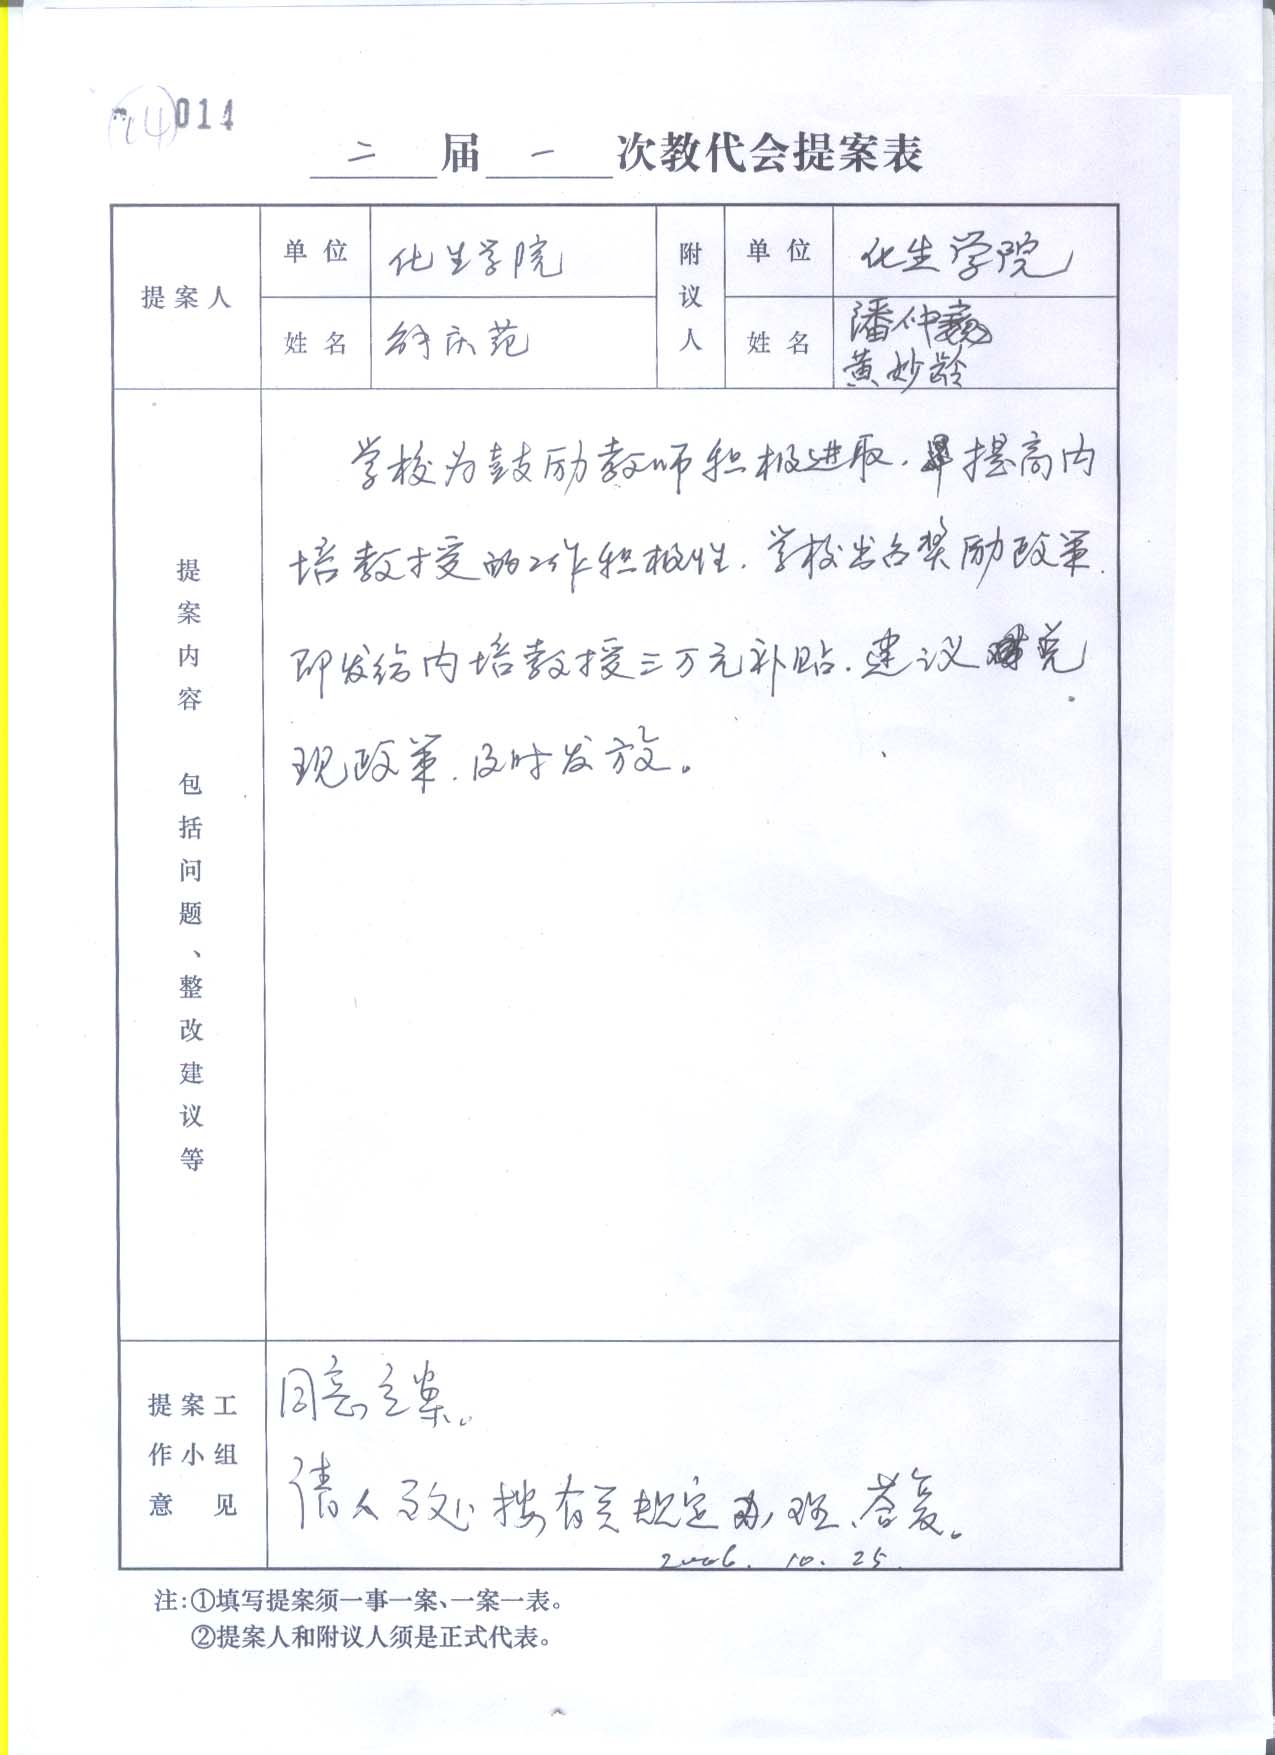 14 014
二 届 一 次教代会提案表
提案人 单位 化生学院 附议人 单位 化生学院
姓名 舒庆范 姓名 潘仲巍
黄妙龄
提案内容 包括问题、整改建议等
学校为鼓励教师积极进取，提高内
培教授的工作积极性，学校出台奖励政策，
即发给内培教授三万元补贴，建议兑
现政策，及时发放。
提案工作小组意见
同意立案。
请人事处按有关规定办理、答复。
2006. 10. 25.
注:①填写提案须一事一案、一案一表。
②提案人和附议人须是正式代表。